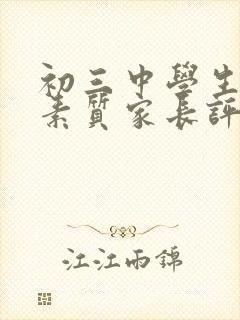 初三中學生
素質家長評
江江雨錦